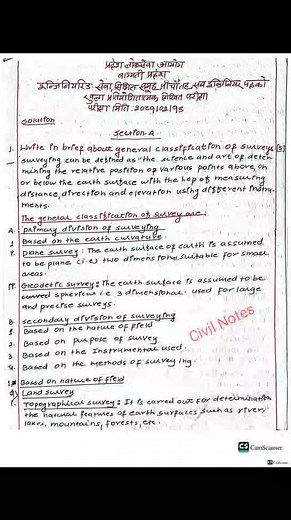 प्रदेश लोकसेवा आयोग
बागमती प्रदेश
इन्जिनियरिङ सेवा, सिभिल समूह, पाँचौं तह, सब इन्जिनियर पदको
खुला प्रतियोगितात्मक लिखित परीक्षा
परीक्षा मिति:
Solution
Section-A
1. Write in brief about general classification of surveys [5]
→ Surveying can be defined as the science and art of deter-
mining the relative position of various points above, on
or below the earth surface with the hep of measuring
distance, direction and elevation using different instru-
ments.
The general classification of survey are
A. primary division of surveying
1 Based on the earth curvature
i. plane survey: The earth surface of earth is assumed
to be plane (i.e) two dimensione suitable for small
areas.
ii. Geodetic survey: The earth surface is assumed to be
spherical i.e 3 dimensional. used for large
and precise surveys.
B secondary division of surveying
1 Based on the nature of field
2. Based on purpose of survey
3. Based on the Instrumental used.
4. Based on the methods of surveying.
1. Based on nature of field
a) Land survey
i. Topographical survey: It is carred out for determination
the natural features of earth surfaces such as river,
lakes, mountains, forests, etc.
Civil Notes
CS CamScanner